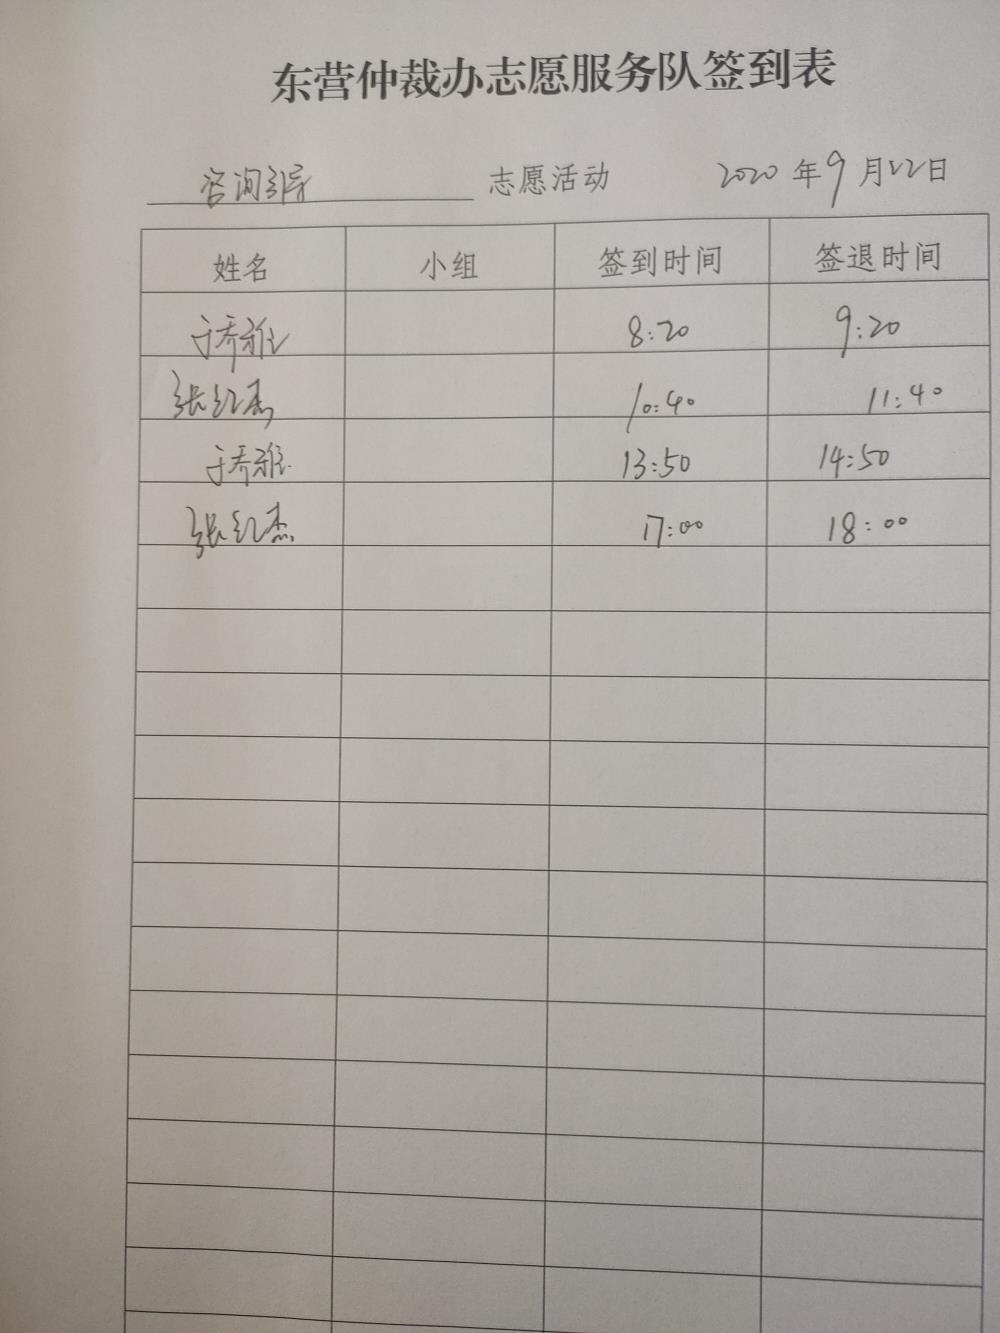 东营仲裁办志愿服务队签到表
咨询引导 志愿活动 2020 年 9 月 22 日
姓名 小组 签到时间 签退时间
于乔雅 8:20 9:20
张红杰 10:40 11:40
于乔雅 13:50 14:50
张红杰 17:00 18:00